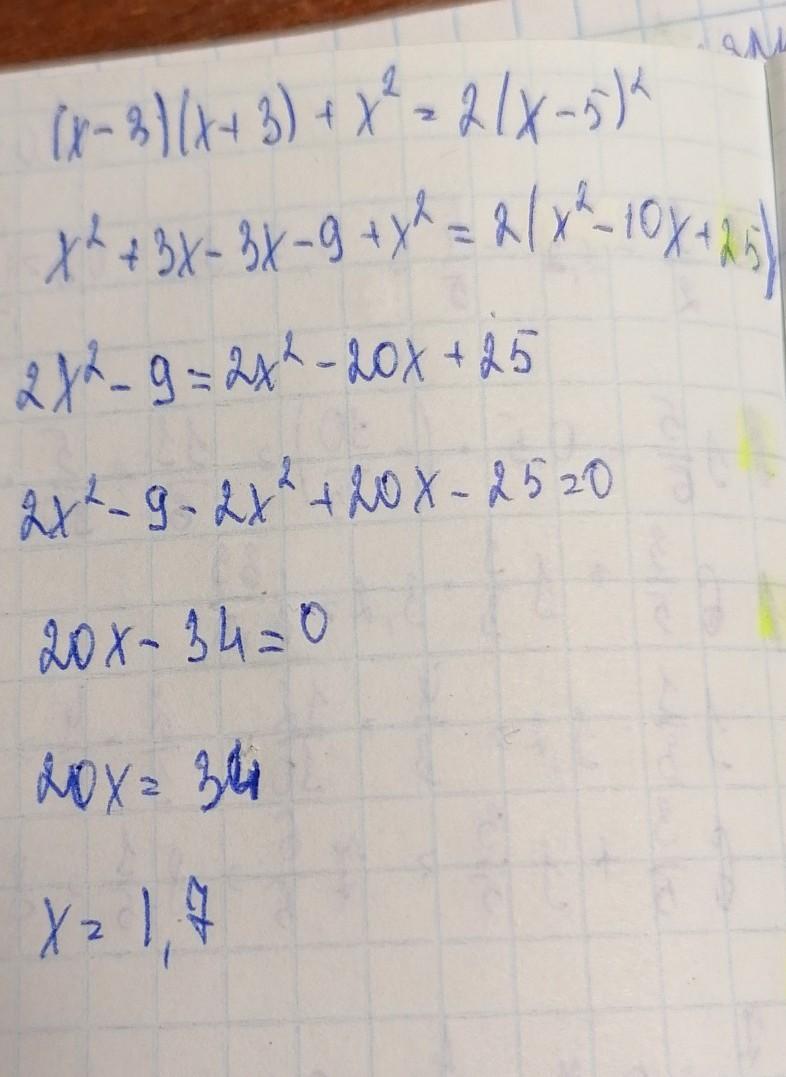 (x-3)(x+3)+x²=2(x-5)²
x²+3x-3x-9+x²=2(x²-10x+25)
2x²-9=2x²-20x+25
2x²-9-2x²+20x-25=0
20x-34=0
20x=34
x=1,7